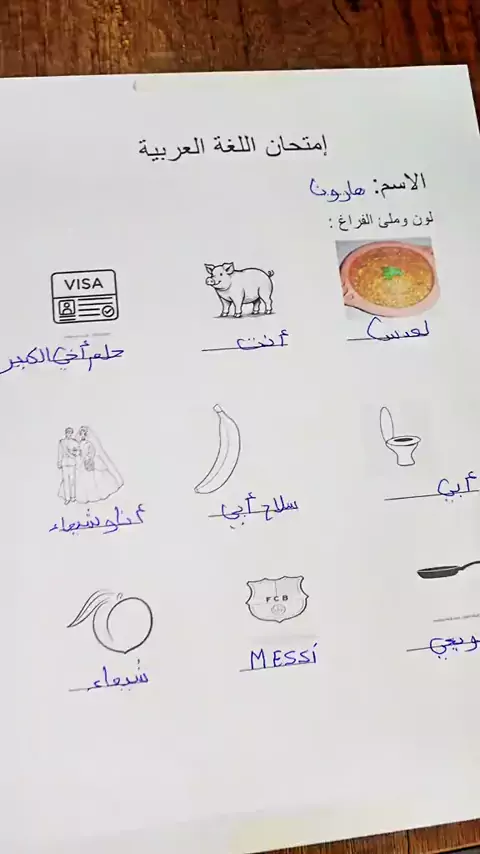 إمتحان اللغة العربية
الاسم: هارون
لون وملئ الفراغ :
لعدس
أنت
VISA
حلم أخي الكبير
أبي
سلاح أبي
أنا و شيماء
FCB
MESSi
شيماء